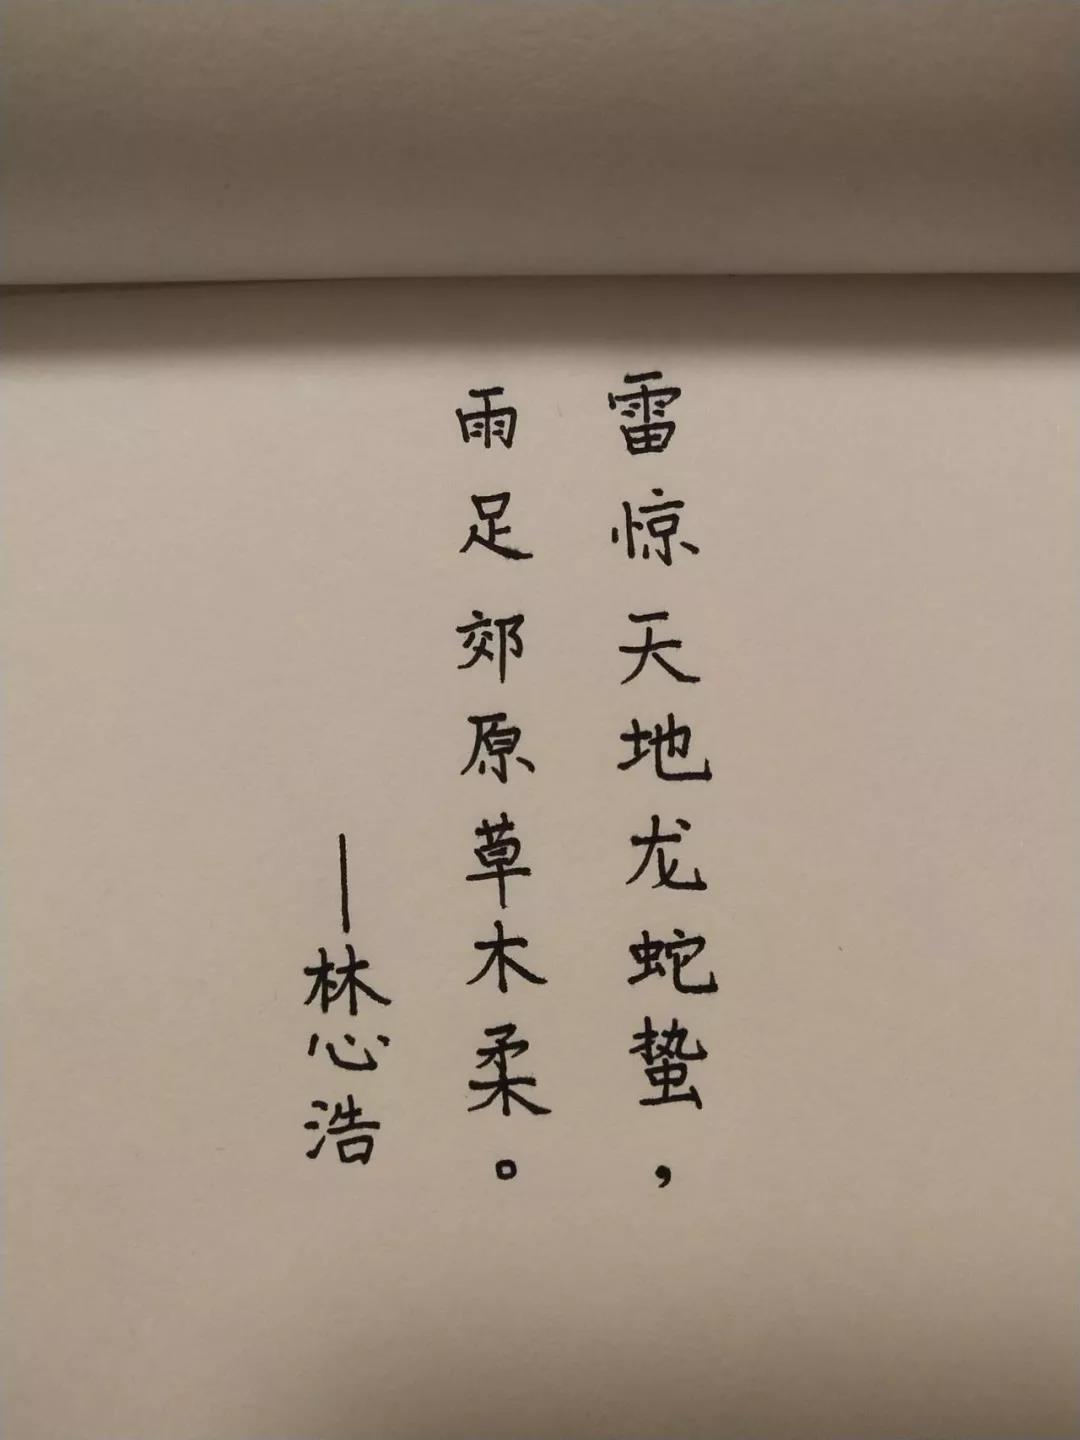 雷惊天地龙蛇蛰，
雨足郊原草木柔。
—林心浩